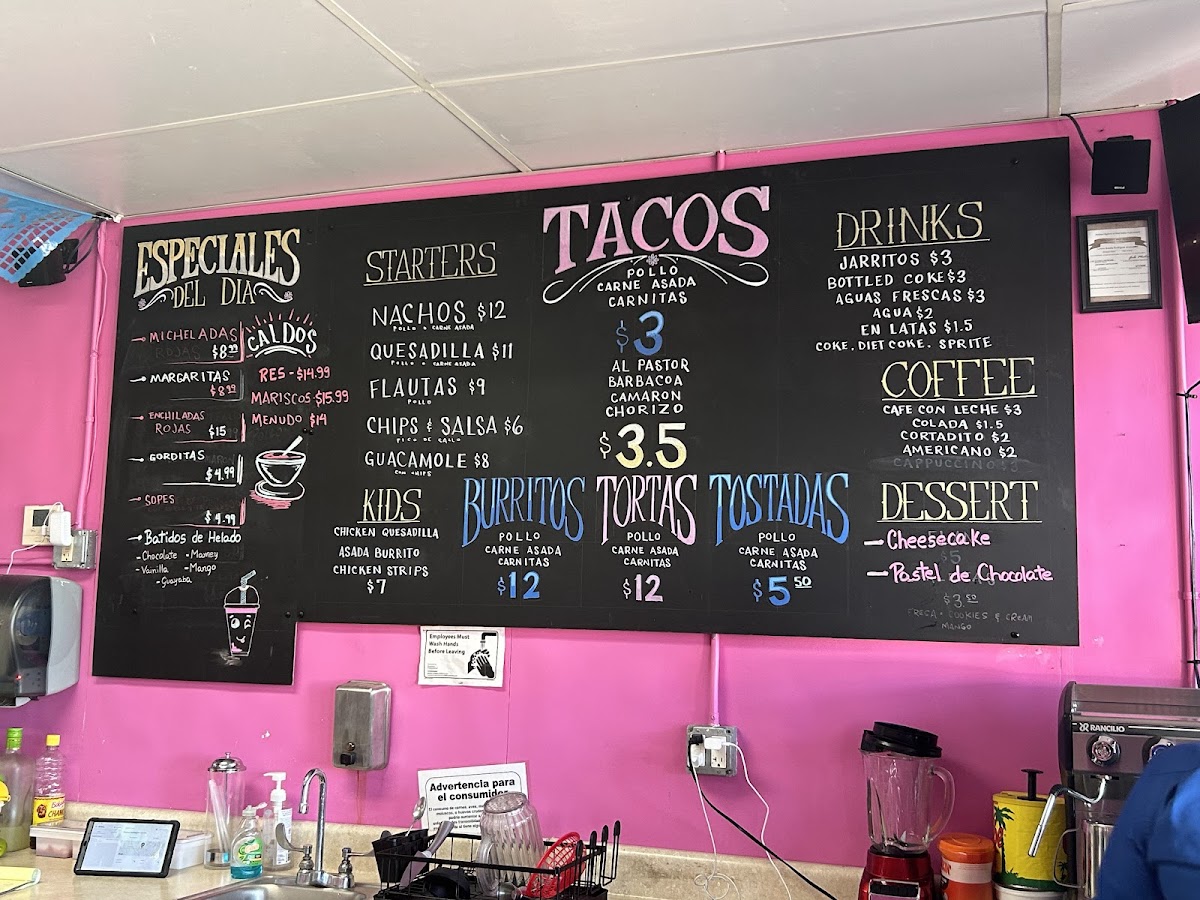 ESPECIALES
DEL DIA
MICHELADAS
ROJAS $8.99
MARGARITAS
$8.99
ENCHILADAS
ROJAS $15
GORDITAS
$4.99
SOPES
$4.99
Batidos de Helado
- Chocolate - Mamey
- Vainilla - Mango
- Guayaba
CALDOS
RES - $14.99
MARISCOS - $15.99
MENUDO $14
STARTERS
NACHOS $12
POLLO O CARNE ASADA
QUESADILLA $11
POLLO O CARNE ASADA
FLAUTAS $9
POLLO
CHIPS & SALSA $6
PICO DE GALLO
GUACAMOLE $8
CON CHIPS
KIDS
CHICKEN QUESADILLA
ASADA BURRITO
CHICKEN STRIPS
$7
TACOS
POLLO
CARNE ASADA
CARNITAS
$3
AL PASTOR
BARBACOA
CAMARON
CHORIZO
$3.5
BURRITOS
POLLO
CARNE ASADA
CARNITAS
$12
TORTAS
POLLO
CARNE ASADA
CARNITAS
$12
TOSTADAS
POLLO
CARNE ASADA
CARNITAS
$5.50
DRINKS
JARRITOS $3
BOTTLED COKE $3
AGUAS FRESCAS $3
AGUA $2
EN LATAS $1.5
COKE. DIET COKE. SPRITE
COFFEE
CAFE CON LECHE $3
COLADA $1.5
CORTADITO $2
AMERICANO $2
CAPPUCCINO $3
DESSERT
- Cheesecake
$5
- Pastel de Chocolate
$3.50
FRECA - COOKIES & CREAM
MANGO
Employees Must
Wash Hands
Before Leaving
Advertencia para
el consumidor
RANCILIO